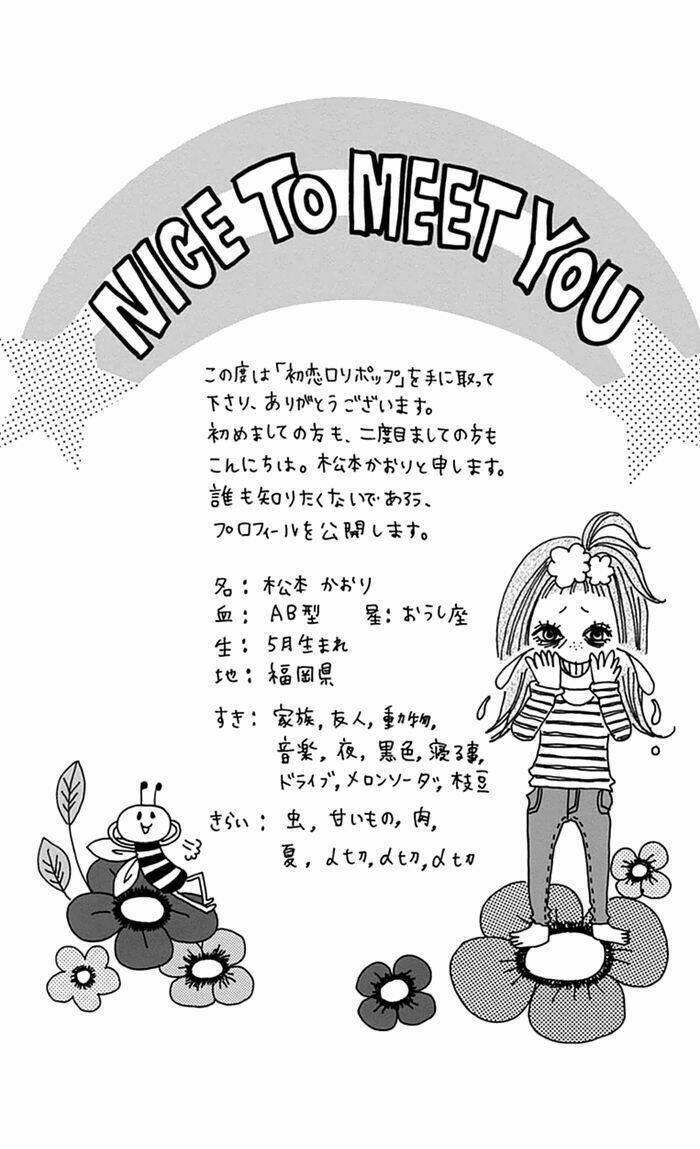 NICE TO MEET YOU
この度は「初恋ロリポップ」を手に取って
下さり、ありがとうございます。
初めましての方も、二度目ましての方も
こんにちは。松本かおりと申します。
誰も知りたくないであろう、
プロフィールを公開します。
名： 松本 かおり
血： AB型 星：おうし座
生： 5月生まれ
地： 福岡県
すき： 家族, 友人, 動物,
音楽, 夜, 黒色, 寝る事,
ドライブ, メロンソーダ, 枝豆
きらい： 虫, 甘いもの, 肉,
夏, 〆切, 〆切, 〆切